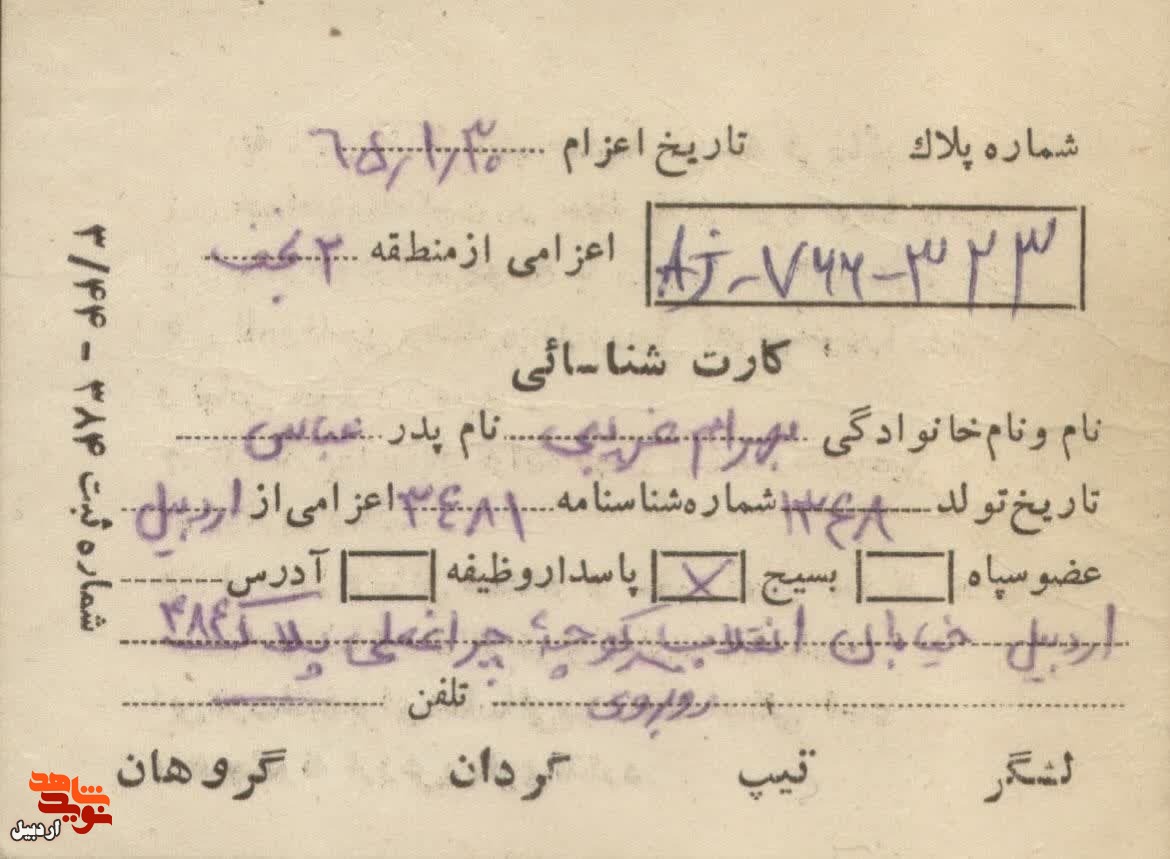 شماره پلاك تاریخ اعزام ۶۵/۱/۳۰
AJ-۷۶۶-۳۲۳ اعزامی از منطقه ۲ نجف
کارت شناسائی
نام و نام خانوادگی بهرام غریبی نام پدر عباس
تاریخ تولد ۱۳۴۸ شماره شناسنامه ۳۴۸۱ اعزامی از اردبیل
عضو سپاه بسیج X پاسدار وظیفه آدرس
اردبیل خیابان انقلاب کوچهٔ چراغعلی پلاک ۴۸۴
روبروی تلفن
لشگر تیپ گردان گروهان
شماره ثبت ۳۸۴ - ۳/۴۴
شاهد
نوید
اردبیل